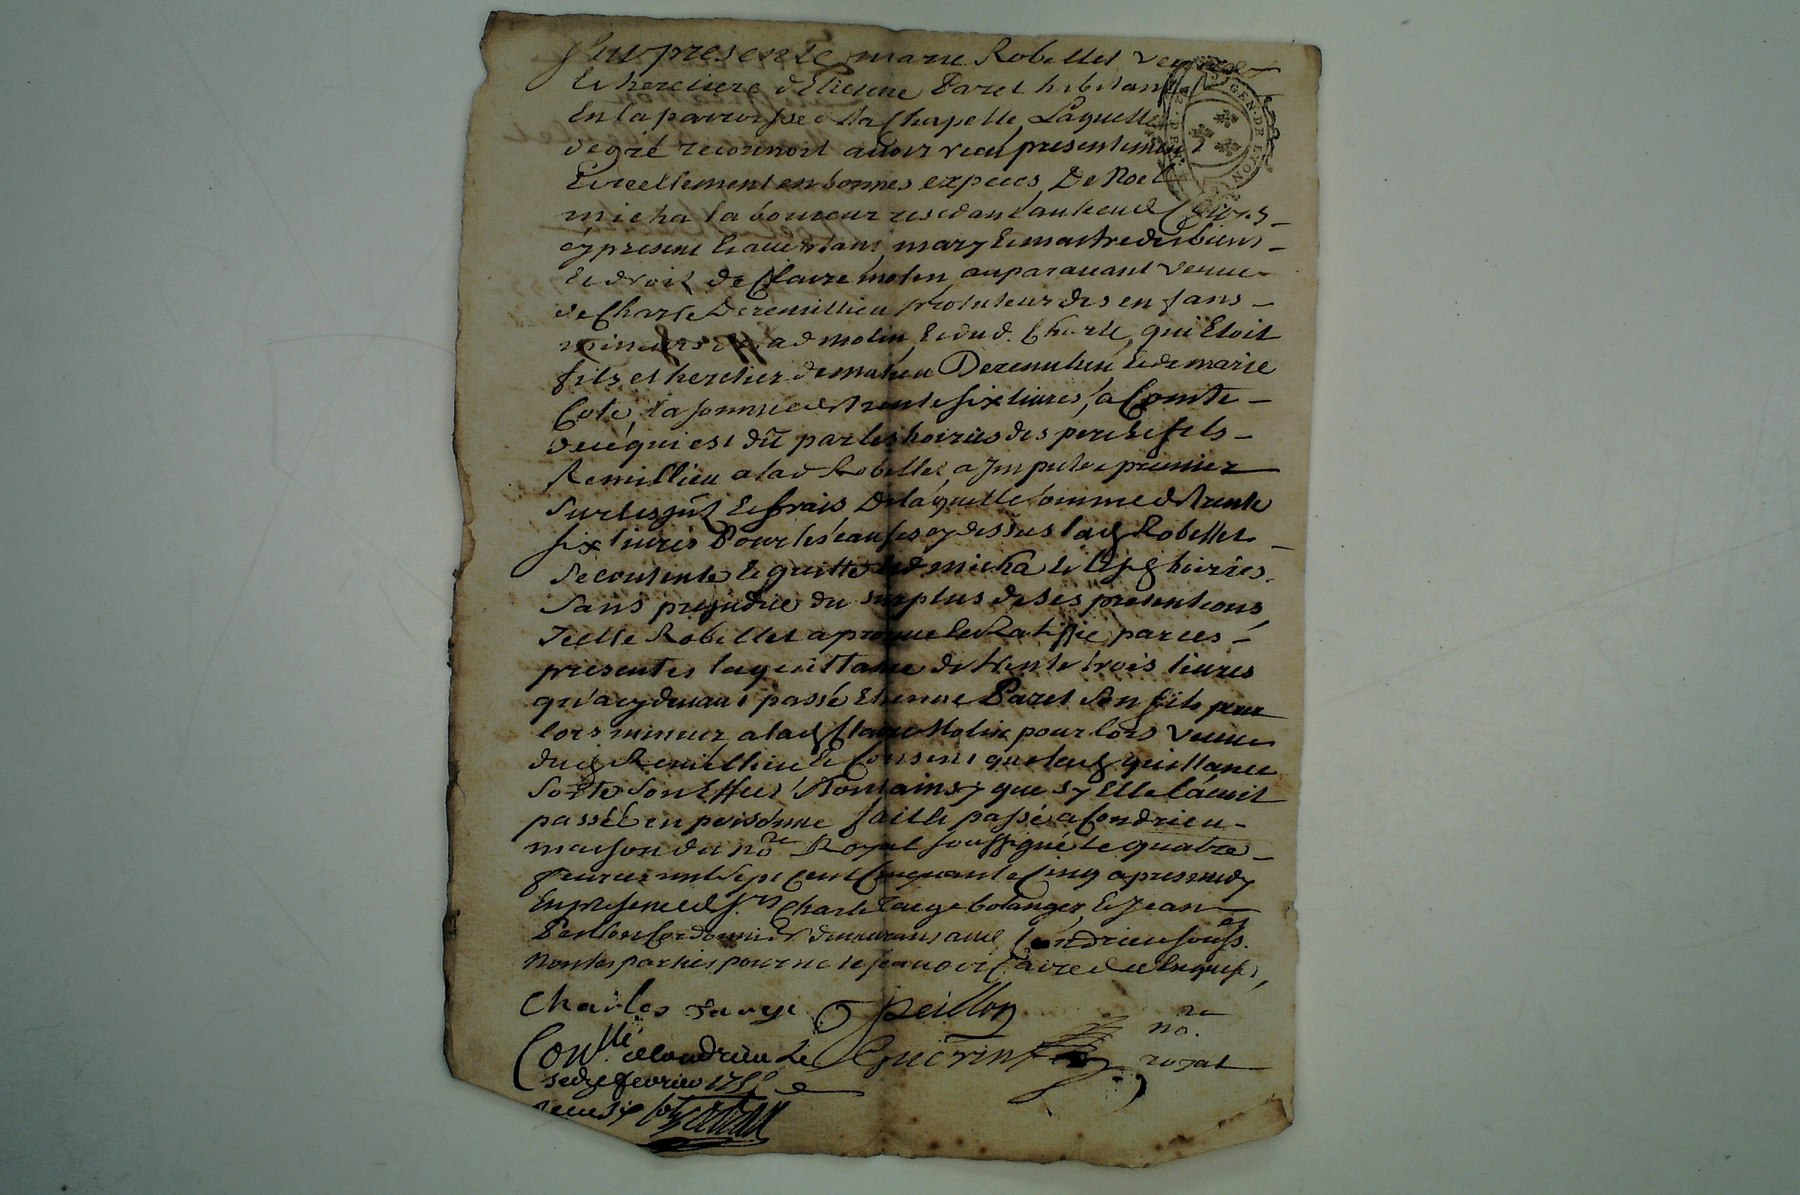 Fut presente marie Robellet veuve
Et heretiere d'Etienne Paret habitante
En la parroisse de la Chapelle Laquelle
de gré reconnoit avoir receu presentement
Et reellement en bonnes especes, De Noel
micha laboureur residant au lieu de
cy present Et acceptant, mary Et maistre des biens
Et droit de Claire molin auparavant veuve
de Charle Deremillieu protuteur des enfans
mineurs de lad molin, Et dud. Charle, qui Etoit
fils et heretier de mathieu Deremillieu Et de marie
Cote, la somme de trente six livres, a Compte
de ce qui est dû par les hoiries des pere Et fils
Remillieu a lad Robellet a Imputer premier
Sur les Et frais De laquelle somme de trente
six livres Pour les causes cy dessus lad Robellet
Se contente Et quitte led micha Et lesd hoiries
Sans prejudice du surplus de ses pretentions
Icelle Robellet aprouve Et Ratiffie par ces
presentes la quittance de trente trois livres
qu'a cy devant passé Etienne Paret son fils pour
lors mineur a lad Claire Molin pour lors veuve
dud Remillieu Et Consent que lad quittance
Sorte Son Effect Tout ainsy que sy Elle l'avoit
passée en personne fait Et passé a Condrieu
maison du no.re Royal soussigné le quatre
fevrier mil sept cent Cinquante Cinq apres midy
En presence de s.rs Charle Tauge bolanger, Et Jean
Peillon Cordonnier demeurans aud Condrieu souss.és
Non les parties pour ne le scavoir faire de ce Enquises,
Charles Tauge Peillon
Guerin no.re
royal
Con.llé a Condrieu Le
seize fevrier 175